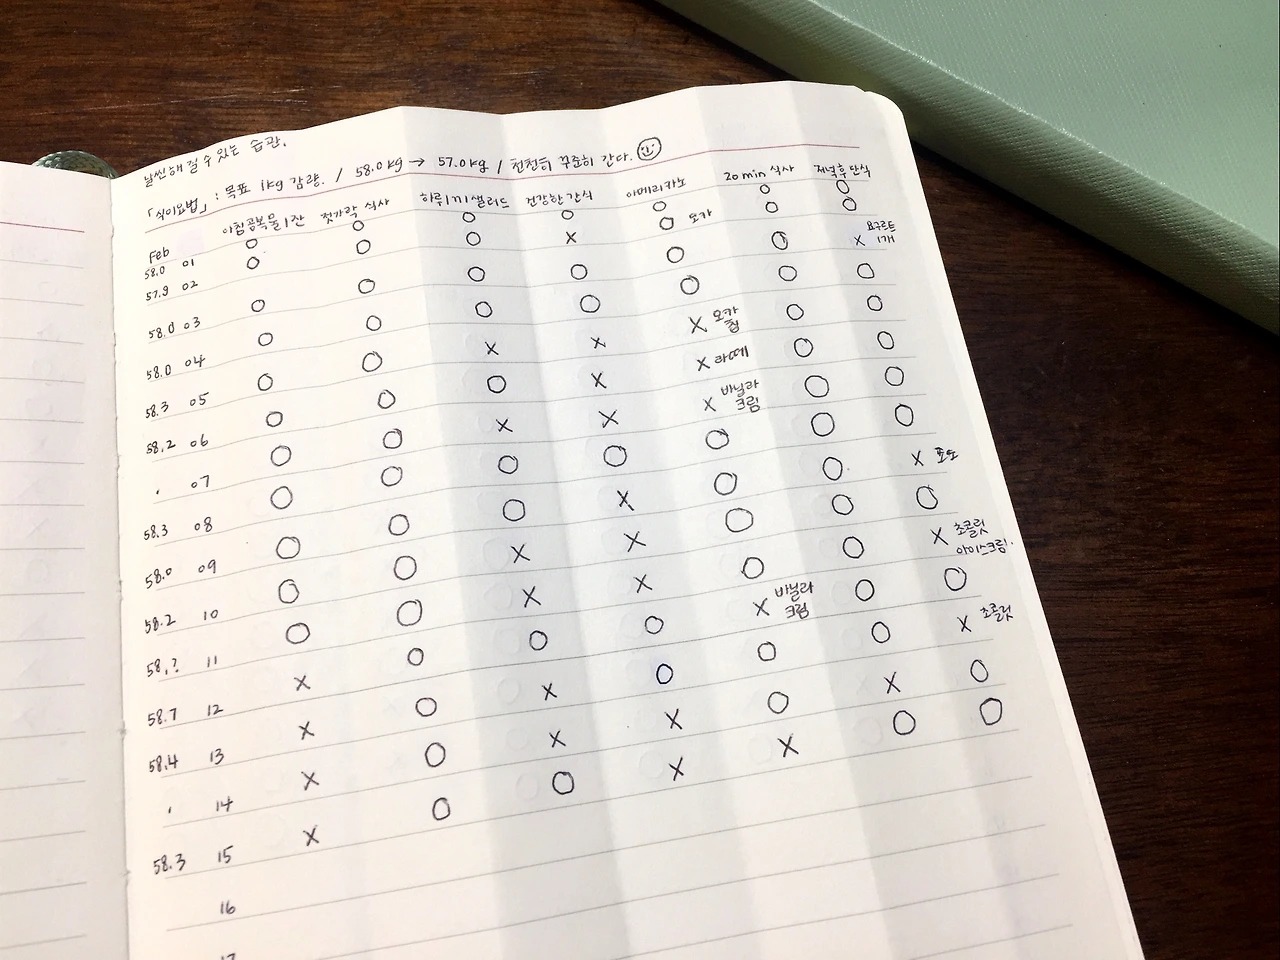 날씬해질 수 있는 습관.
「식이요법」 : 목표 1kg 감량. / 58.0kg → 57.0kg / 천천히 꾸준히 간다.
Feb 아침공복물1잔 젓가락 식사 하루1끼샐러드 건강한 간식 아메리카노 20min 식사 저녁후단식
58.0 01 O O O O O O O
57.9 02 O O O X O 모카 O O
58.0 03 O O O O O O X 요구르트 1개
58.0 04 O O O O O O O
58.3 05 O O X X X 모카칩 O O
58.2 06 O O O X X 라떼 O O
. 07 O O X X X 바닐라 크림 O O
58.3 08 O O O O O O O
58.0 09 O O O X O O X
58.2 10 O O X X O O O
58.? 11 O O X X O O X 초콜릿 아이스크림.
58.7 12 X O O O X 바닐라 크림 O O
58.4 13 X O X O O O X 초콜릿
. 14 X O X X O X O
58.3 15 X O O X X O O
16
17